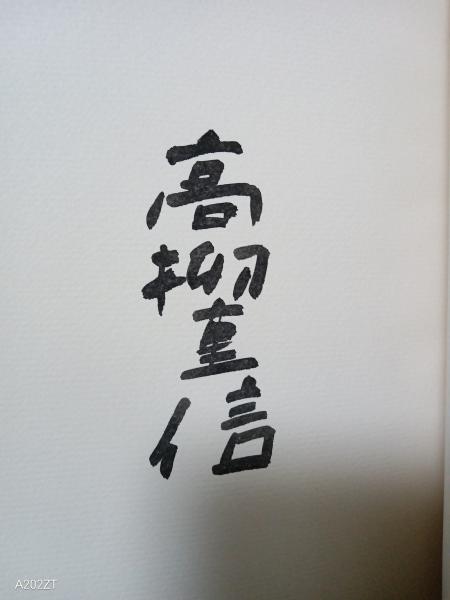 高柳重信
A202ZT